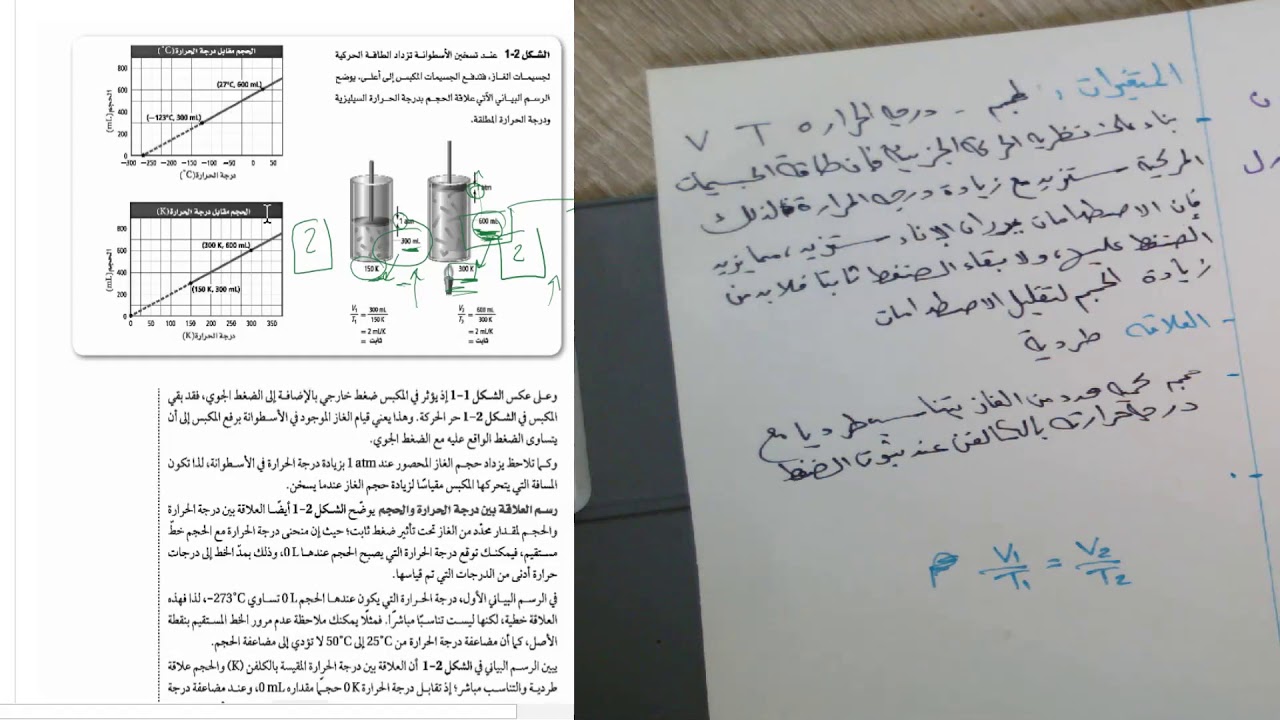 الحجم مقابل درجة الحرارة (°C)
الحجم (mL)
800
600
400
200
0
(27°C, 600 mL)
(−123°C, 300 mL)
−300 −250 −200 −150 −100 −50 0 50
درجة الحرارة (°C)
الحجم مقابل درجة الحرارة (K)
الحجم (mL)
800
600
400
200
0
(300 K, 600 mL)
(150 K, 300 mL)
0 50 100 150 200 250 300 350
درجة الحرارة (K)
الشكل 2-1 عند تسخين الأسطوانة تزداد الطاقة الحركية
لجسيمات الغاز، فتدفع الجسيمات المكبس إلى أعلى. يوضح
الرسم البياني الآتي علاقة الحجم بدرجة الحرارة السيليزية
ودرجة الحرارة المطلقة.
1 atm
600 mL
300 mL
150 K
300 K
2
2
V₁/T₁ = 300 mL/150 K
= 2 mL/K
= ثابت
V₂/T₂ = 600 mL/300 K
= 2 mL/K
= ثابت
وعلى عكس الشكل 1-1 إذ يؤثر في المكبس ضغط خارجي بالإضافة إلى الضغط الجوي، فقد بقي
المكبس في الشكل 2-1 حر الحركة. وهذا يعني قيام الغاز الموجود في الأسطوانة برفع المكبس إلى أن
يتساوى الضغط الواقع عليه مع الضغط الجوي.
وكما تلاحظ يزداد حجم الغاز المحصور عند 1 atm بزيادة درجة الحرارة في الأسطوانة، لذا تكون
المسافة التي يتحركها المكبس مقياسًا لزيادة حجم الغاز عندما يسخن.
رسم العلاقة بين درجة الحرارة والحجم يوضّح الشكل 2-1 أيضًا العلاقة بين درجة الحرارة
والحجم لمقدار محدّد من الغاز تحت تأثير ضغط ثابت؛ حيث إن منحنى درجة الحرارة مع الحجم خطّ
مستقيم، فيمكنك توقع درجة الحرارة التي يصبح الحجم عندها 0L، وذلك بمدّ الخط إلى درجات
حرارة أدنى من الدرجات التي تم قياسها.
في الرسم البياني الأول، درجة الحرارة التي يكون عندها الحجم 0 L تساوي −273°C، لذا فهذه
العلاقة خطية، لكنها ليست تناسبًا مباشرًا. فمثلًا يمكنك ملاحظة عدم مرور الخط المستقيم بنقطة
الأصل، كما أن مضاعفة درجة الحرارة من 25°C إلى 50°C لا تؤدي إلى مضاعفة الحجم.
يبين الرسم البياني في الشكل 2-1 أن العلاقة بين درجة الحرارة المقيسة بالكلفن (K) والحجم علاقة
طردية والتناسب مباشر؛ إذ تقابل درجة الحرارة 0 K حجمًا مقداره 0 mL، وعند مضاعفة درجة
المتغيرات : لحجم - درجه الحراره V T
بناء على نظريه الحركة الجزيئية فان طاقة الجسيمات
الحركية ستزيد مع زيادة درجه الحرارة فالذلك
فإن الاصطدامات بجدران الإناء ستزيد، مما يزيد
الضغط عليه، ولا بقاء الضغط ثابتا فلابد من
زيادة الحجم لتقليل الاصطدامات
- العلاقه طردية
حجم كمية محدده من الغاز يتناسب طرديا مع
درجة حرارته بالكالفن عند ثبوت الضغط
P V₁/T₁ = V₂/T₂